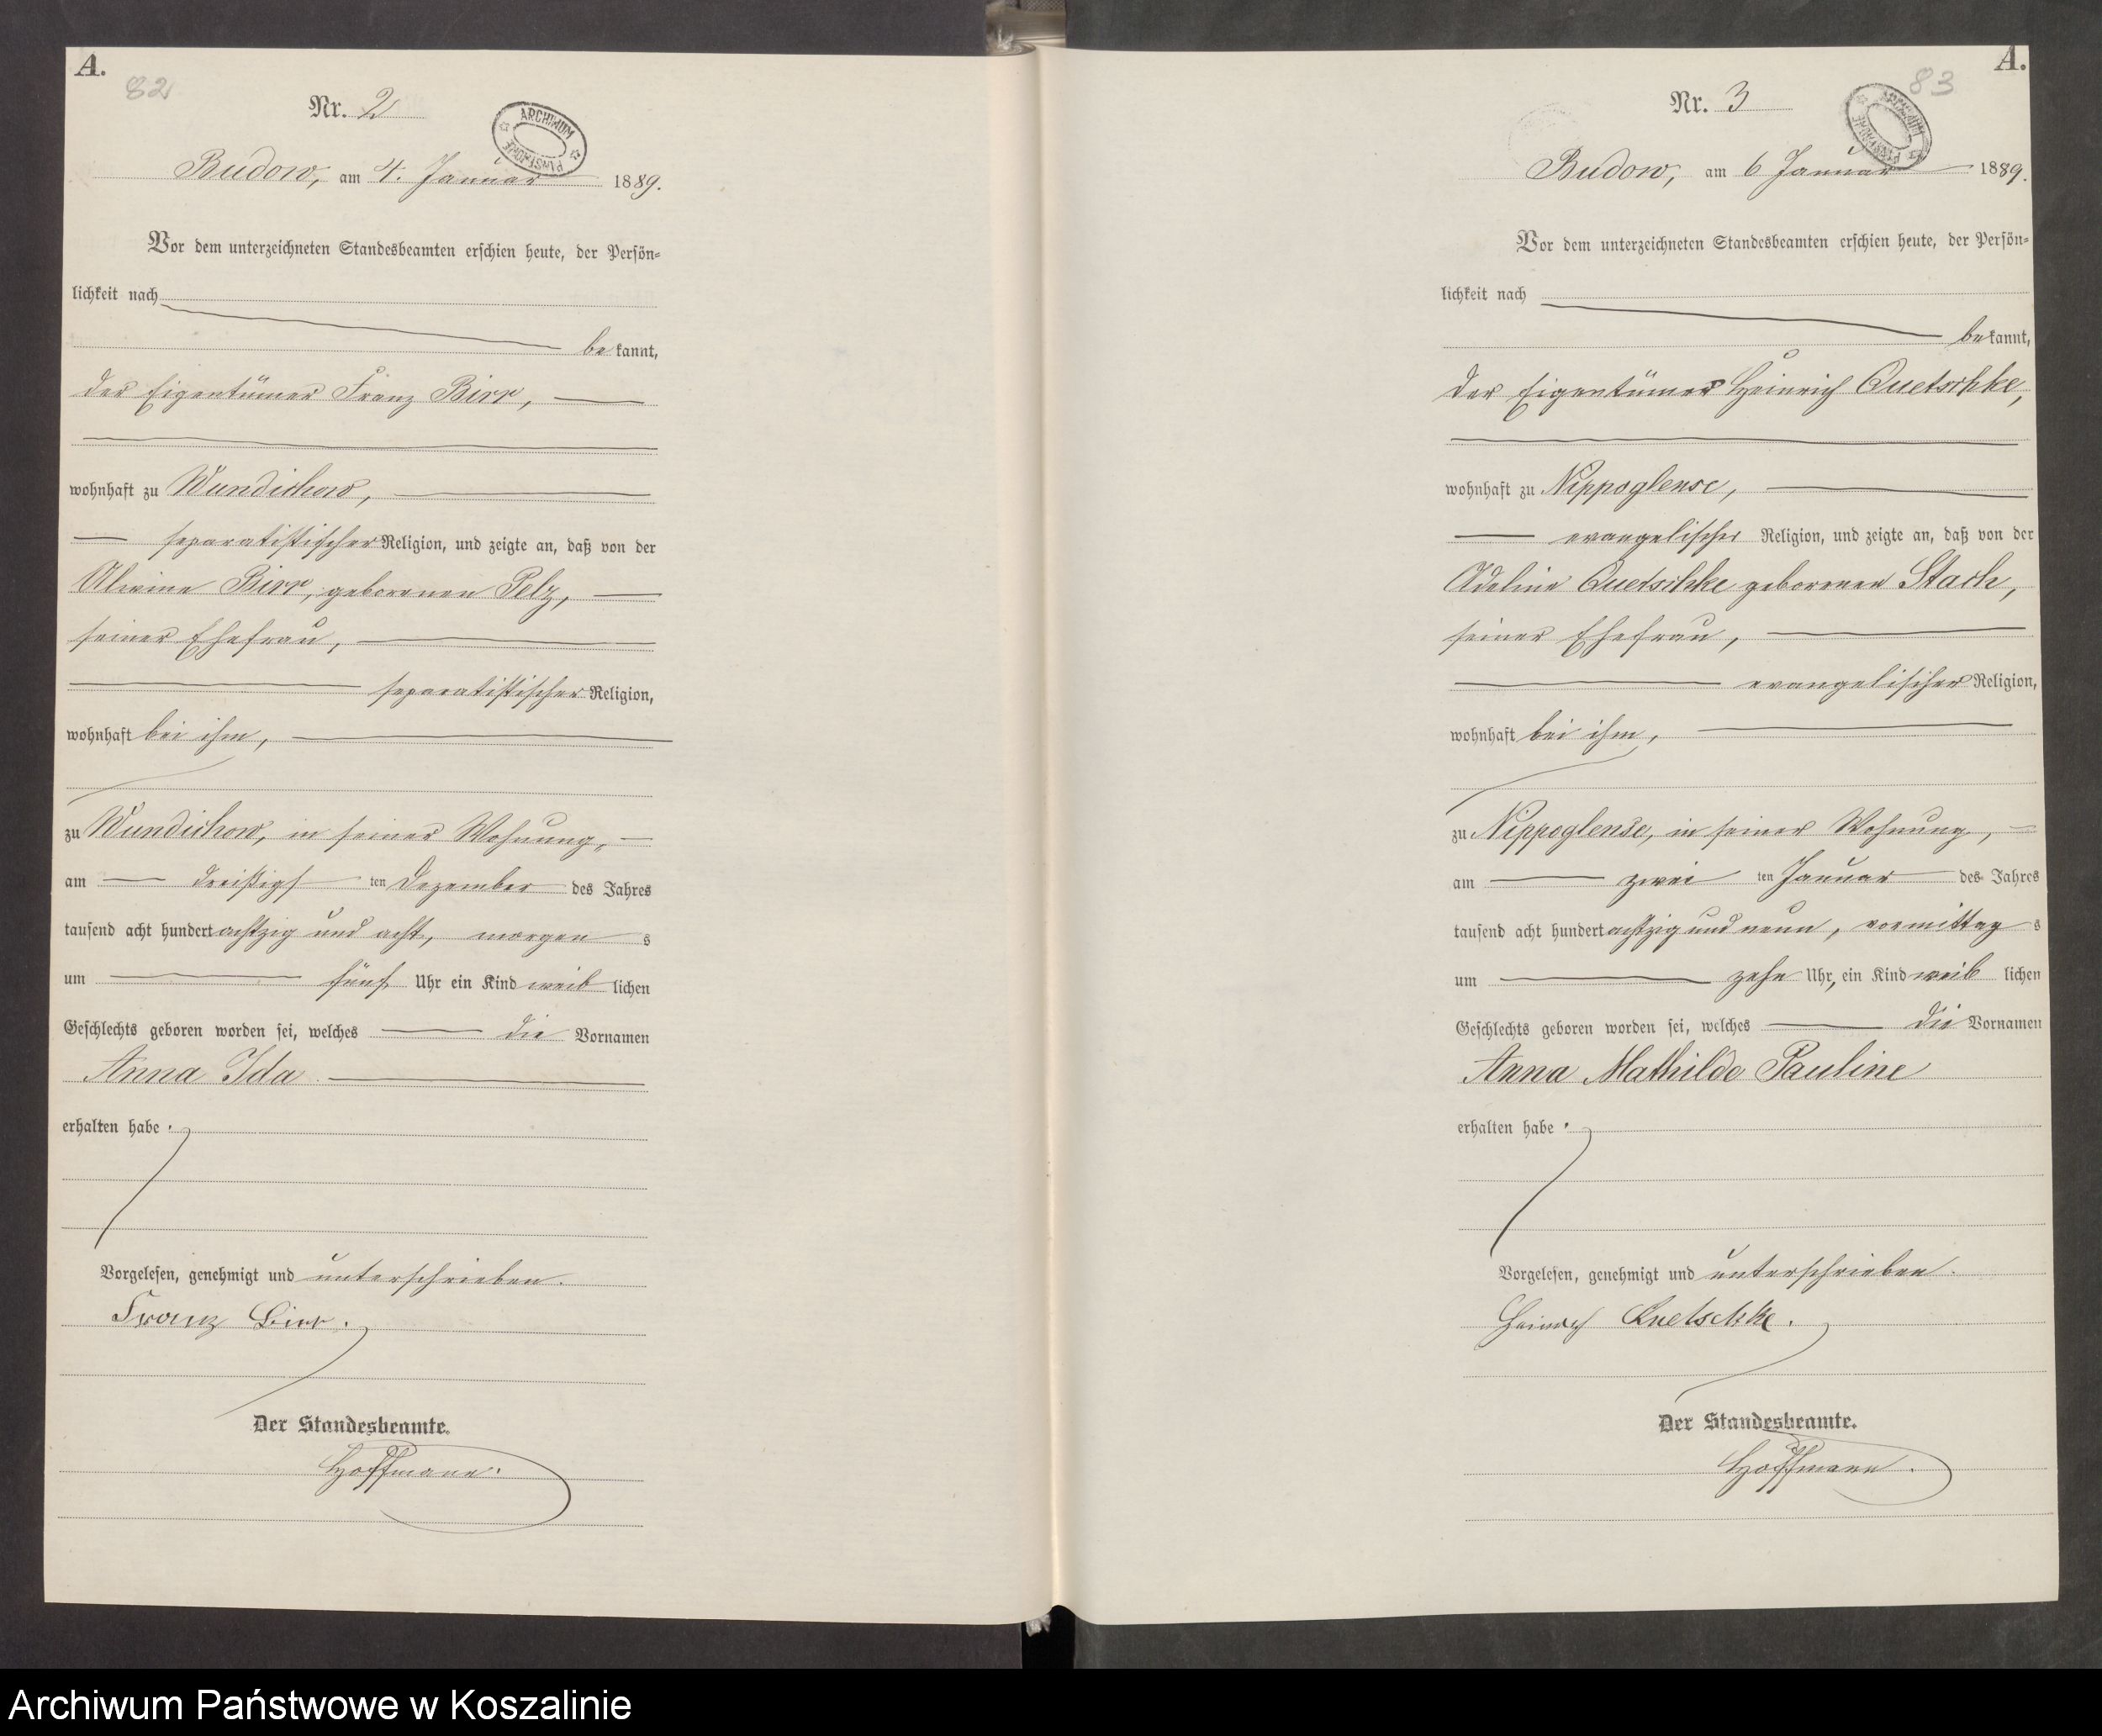 A.
82
Nr. 2
ARCHIWUM PAŃSTWOWE
Budow, am 4. Januar 1889.
Vor dem unterzeichneten Standesbeamten erschien heute, der Persön-
lichkeit nach
bekannt,
der Eigentümer Franz Birr,
wohnhaft zu Wundichow,
separatistischer Religion, und zeigte an, daß von der
Alwine Birr, geborenen Pelz,
seiner Ehefrau,
separatistischer Religion,
wohnhaft bei ihm,
zu Wundichow, in seiner Wohnung,
am dreißigsten Dezember des Jahres
tausend acht hundert achtzig und acht, morgens
um fünf Uhr ein Kind weiblichen
Geschlechts geboren worden sei, welches die Vornamen
Anna Ida
erhalten habe.
Vorgelesen, genehmigt und unterschrieben.
Franz Birr.
Der Standesbeamte.
Hoffmann.
A.
83
Nr. 3
ARCHIWUM PAŃSTWOWE
Budow, am 6 Januar 1889.
Vor dem unterzeichneten Standesbeamten erschien heute, der Persön-
lichkeit nach
bekannt,
der Eigentümer Heinrich Quetschke,
wohnhaft zu Nippoglense,
evangelischer Religion, und zeigte an, daß von der
Adeline Quetschke geborenen Stach,
seiner Ehefrau,
evangelischer Religion,
wohnhaft bei ihm,
zu Nippoglense, in seiner Wohnung,
am zweiten Januar des Jahres
tausend acht hundert achtzig und neun, vormittags
um zehn Uhr, ein Kind weiblichen
Geschlechts geboren worden sei, welches die Vornamen
Anna Mathilde Pauline
erhalten habe.
Vorgelesen, genehmigt und unterschrieben.
Heinrich Quetschke.
Der Standesbeamte.
Hoffmann.
Archiwum Państwowe w Koszalinie